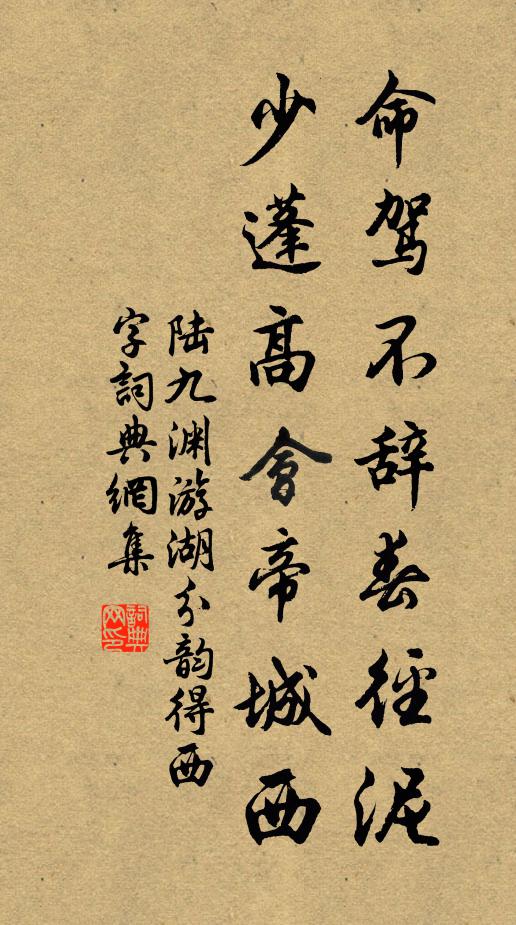 命駕不辞春徑泥
少蓬高會帝城西
陆九渊游湖分韵得西
字詞典網集
詞典网印